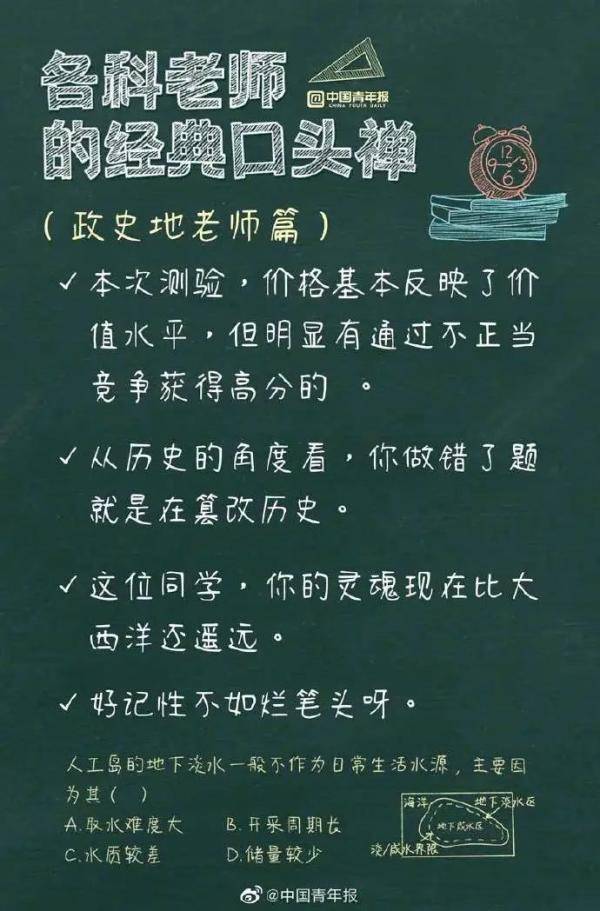 各科老师
@中国青年报
CHINA YOUTH DAILY
的经典口头禅
12
9 3
6
(政史地老师篇)
✓本次测验，价格基本反映了价
值水平，但明显有通过不正当
竞争获得高分的 。
✓从历史的角度看，你做错了题
就是在篡改历史。
✓这位同学，你的灵魂现在比大
西洋还遥远。
✓好记性不如烂笔头呀。
人工岛的地下淡水一般不作为日常生活水源，主要因
为其( )
A.取水难度大 B.开采周期长
C.水质较差 D.储量较少
海洋 地下淡水区
地下咸水区
淡/咸水界限
@中国青年报